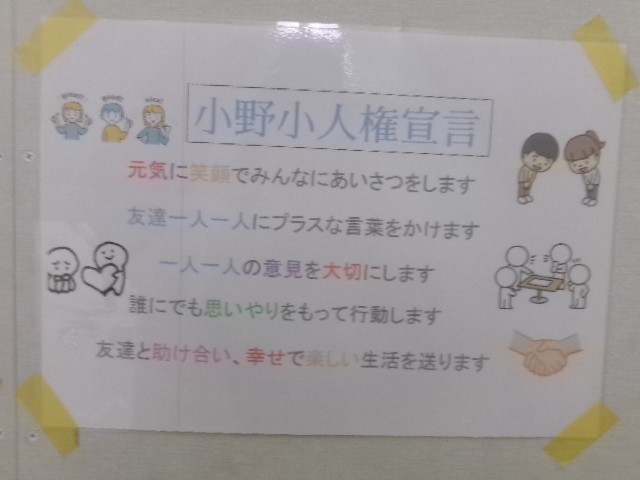 小野小人権宣言
元気に笑顔でみんなにあいさつをします
友達一人一人にプラスな言葉をかけます
一人一人の意見を大切にします
誰にでも思いやりをもって行動します
友達と助け合い、幸せで楽しい生活を送ります